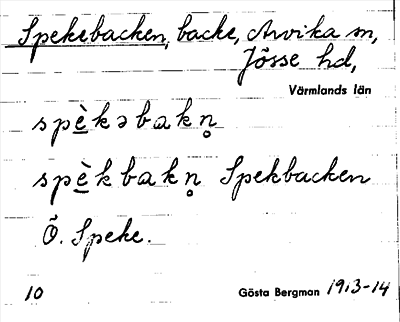 Spekebacken, backe, Arvika sn,
Jösse hd,
Värmlands län
spè̱kəbakn̥
spè̱kbakn̥ Spekbacken
Ö. Speke.
10 Gösta Bergman 1913-14